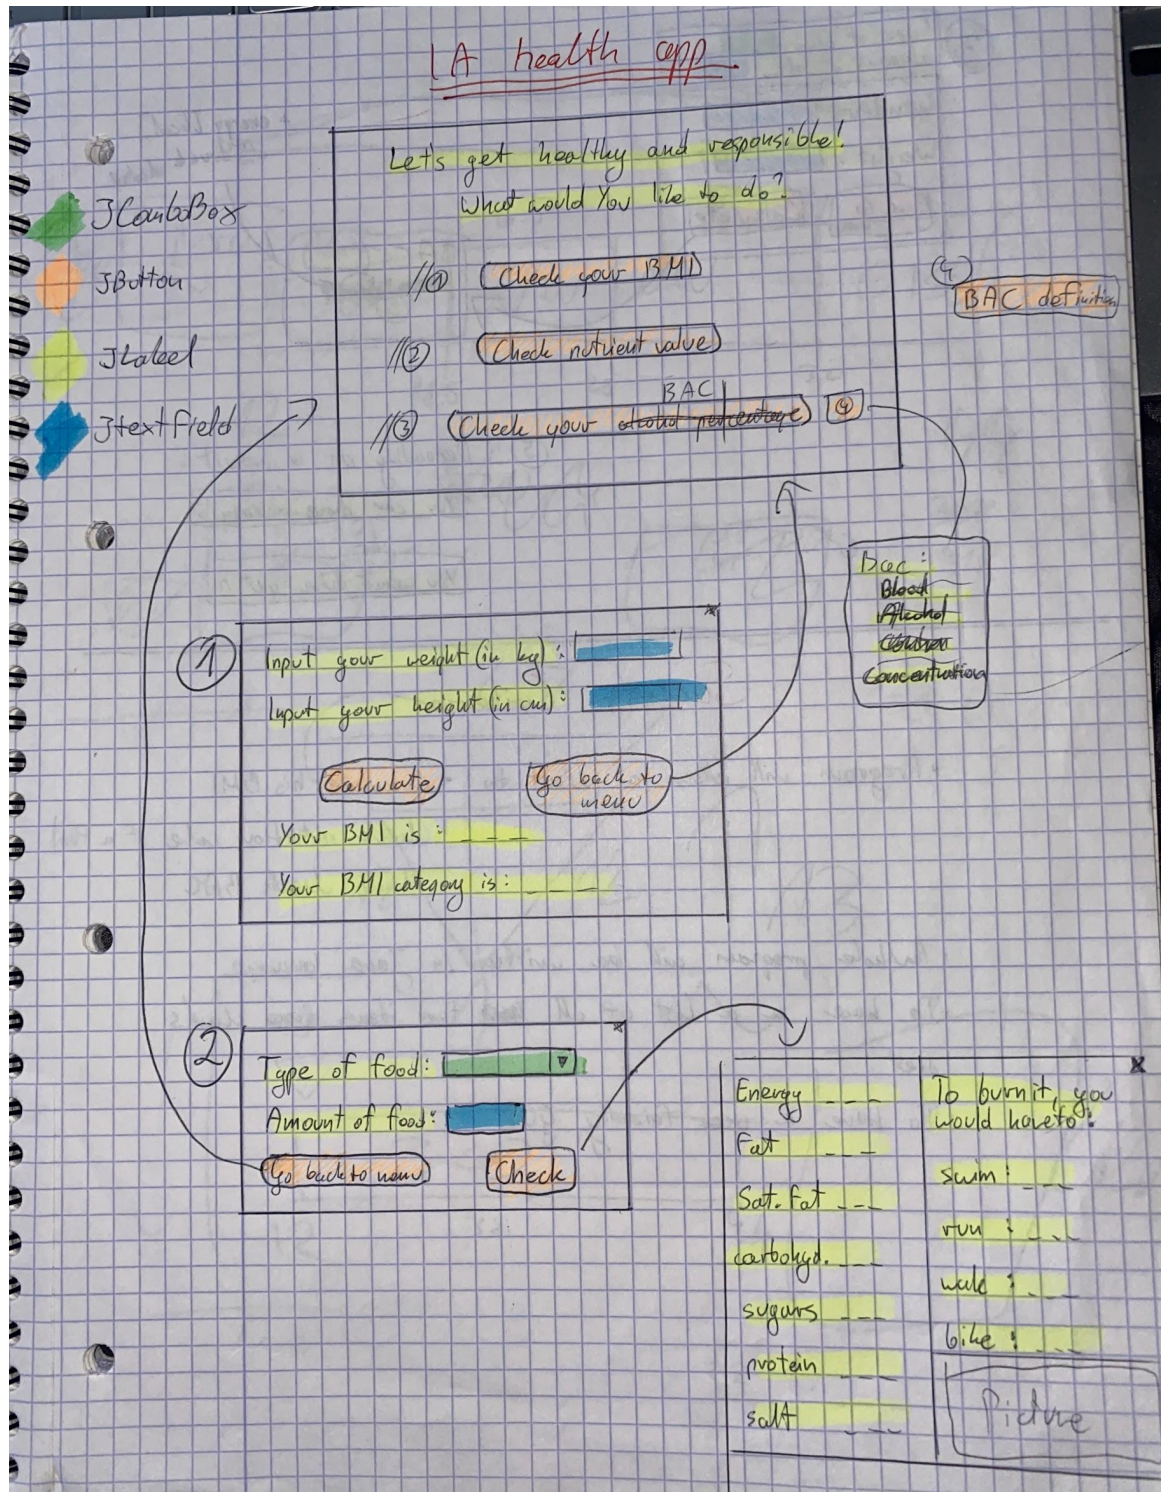 IA health app
JComboBox
JButton
JLabel
JtextField
Let's get healthy and responsible!
What would You like to do?
//① Check your BMI
//② Check nutrient value
BAC
//③ Check your alcohol percentage ④
④
BAC definition
Bac:
Blood
Alcohol
Concentration
①
Input your weight (in kg):
Input your height (in cm):
Calculate
Go back to
menu
Your BMI is: _ _ _
Your BMI category is: _ _ _ _
②
Type of food:
Amount of food:
Go back to menu
Check
Energy _ _ _
Fat _ _ _
Sat. Fat _ _ _
carbohyd. _ _ _
sugars _ _ _
protein _ _ _
salt _ _ _
To burn it, you
would have to:
swim: _ _ _
run: _ _ _
walk: _ _ _
bike: _ _ _
Picture